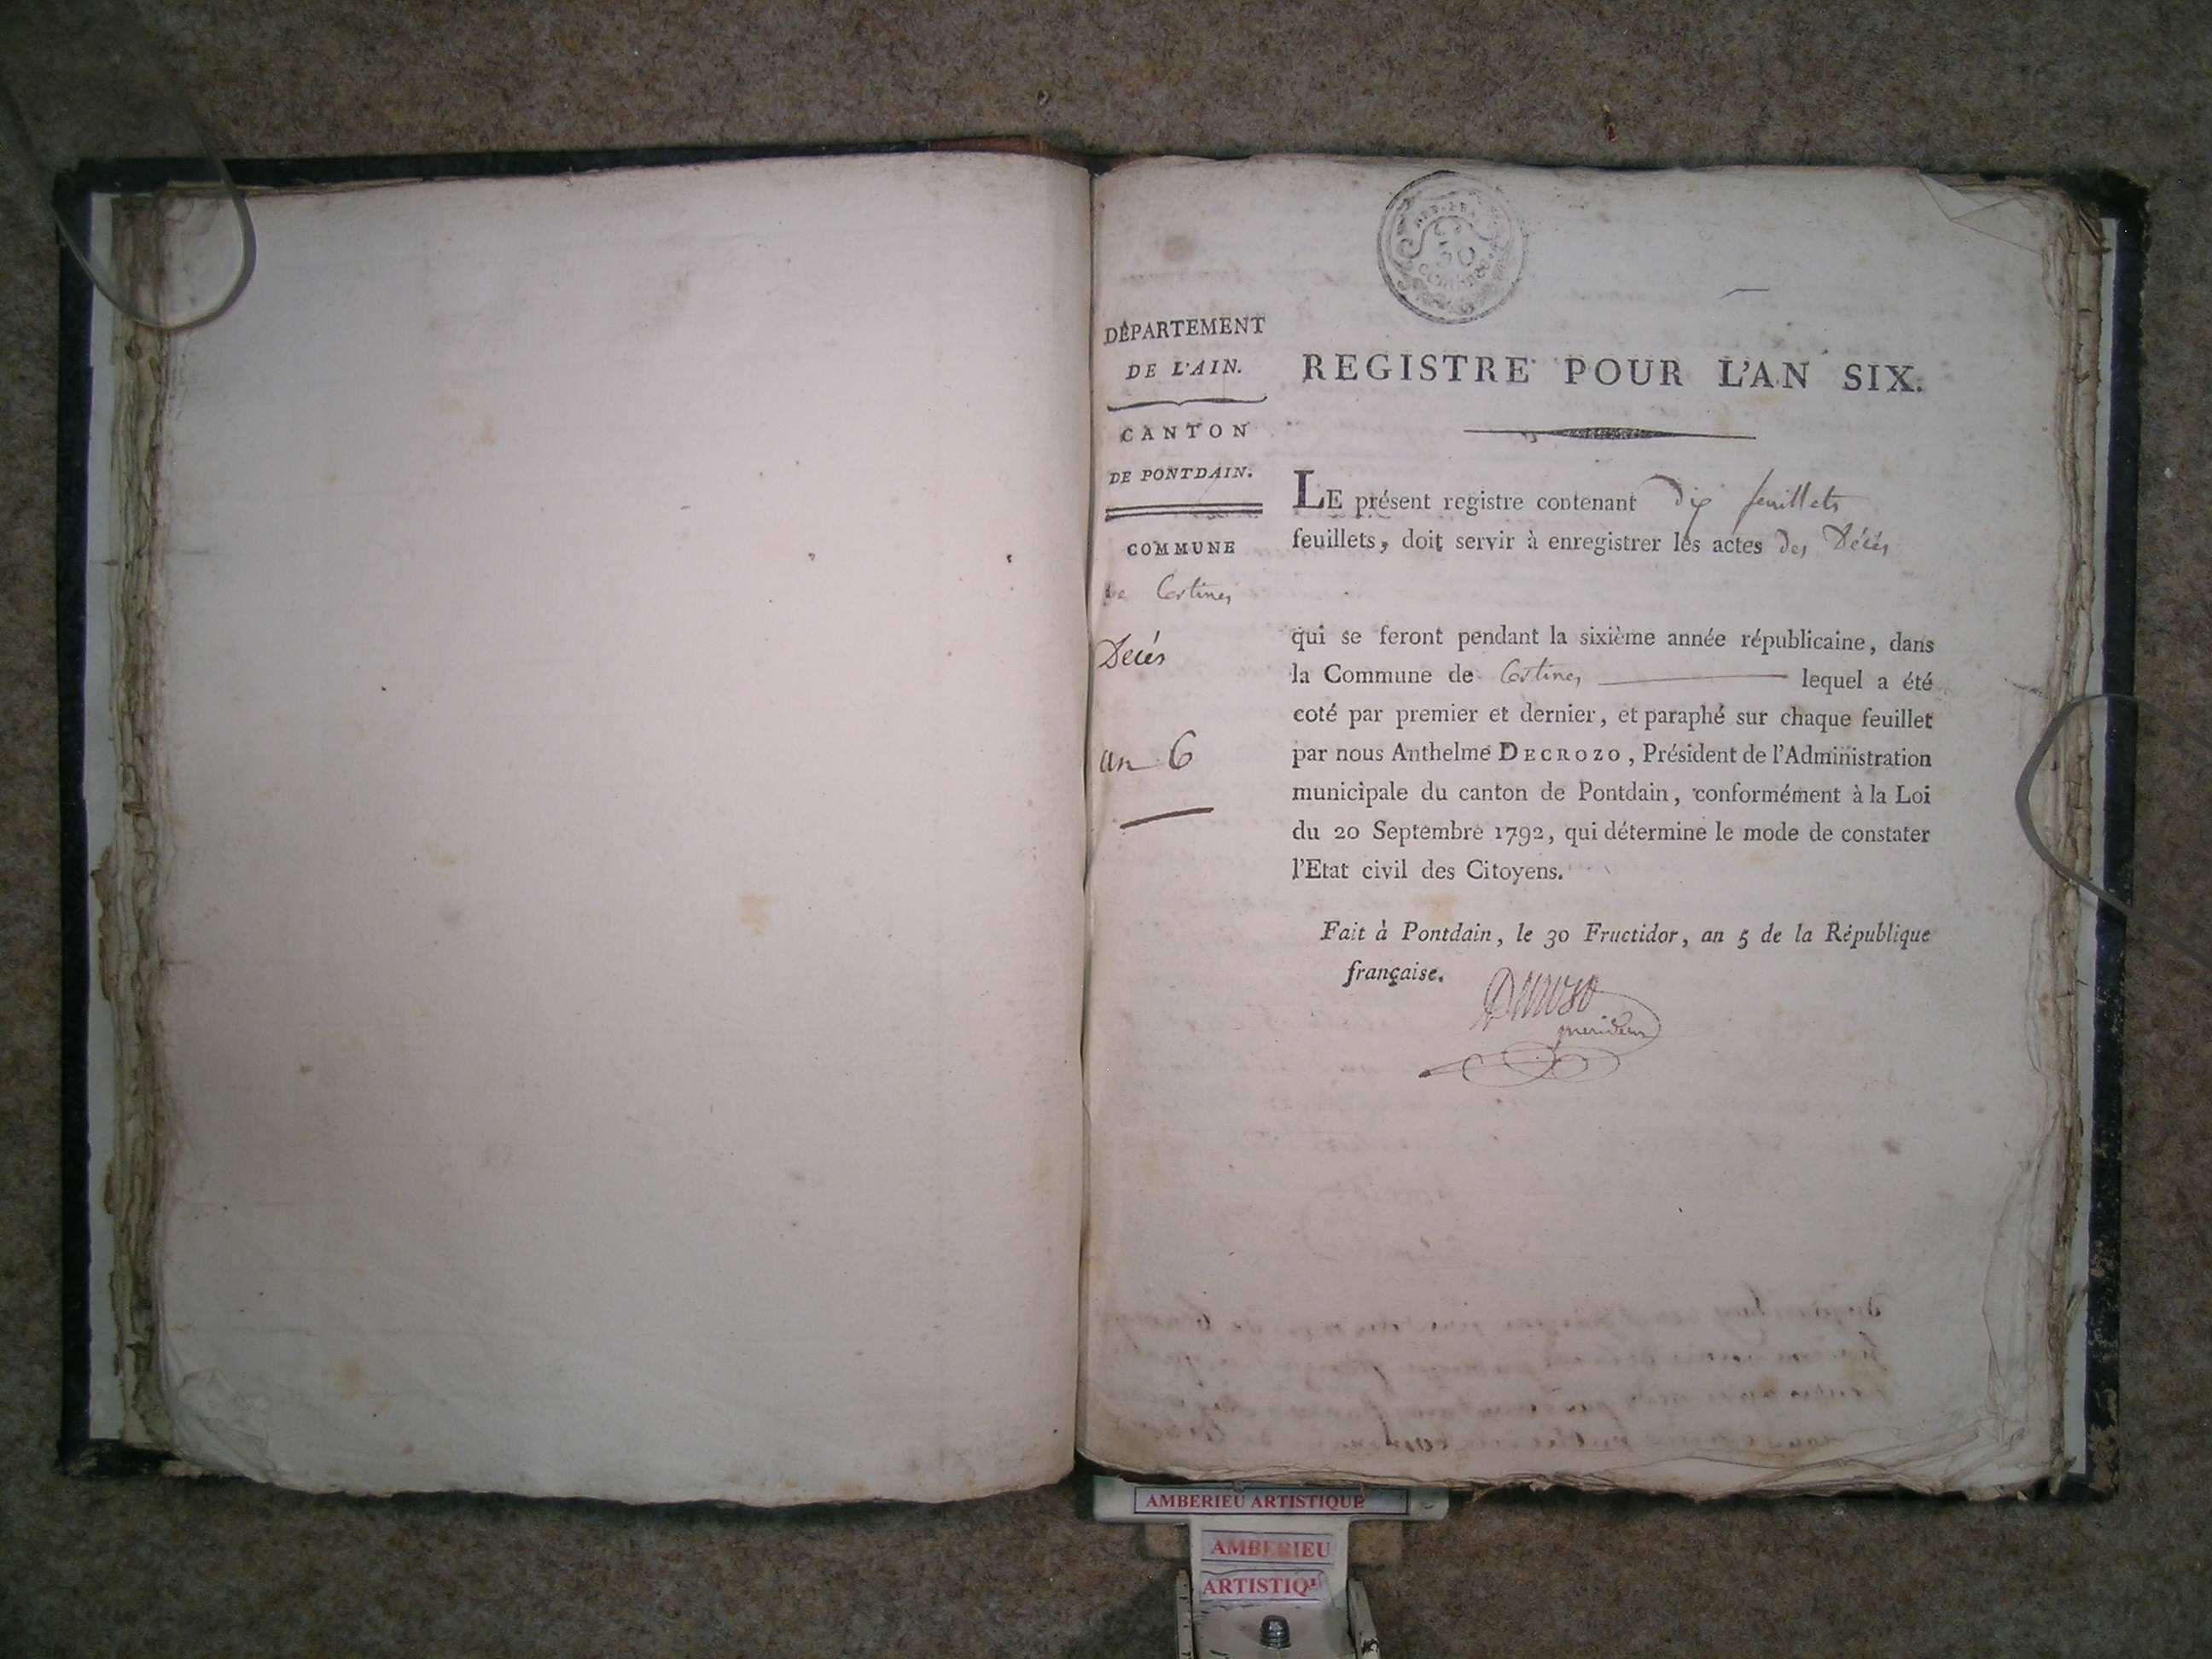 30
DÉPARTEMENT
DE L'AIN.
CANTON
DE PONTDAIN.
COMMUNE
de Certines
Décés
an 6
REGISTRE POUR L'AN SIX.
LE présent registre contenant dix feuillets
feuillets, doit servir à enregistrer les actes des Décés
qui se feront pendant la sixième année républicaine, dans
la Commune de Certines lequel a été
coté par premier et dernier, et paraphé sur chaque feuillet
par nous Anthelme DECROZO, Président de l'Administration
municipale du canton de Pontdain, conformément à la Loi
du 20 Septembre 1792, qui détermine le mode de constater
l'Etat civil des Citoyens.
Fait à Pontdain, le 30 Fructidor, an 5 de la République
française.
Decrozo
AMBERIEU ARTISTIQUE
AMBERIEU
ARTISTIQU